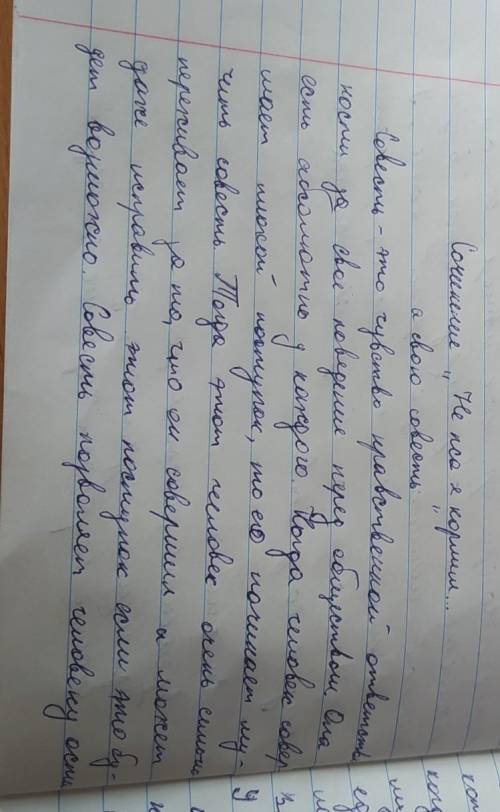 Сочинение „Не пса я кормил...
а свою совесть."
Совесть - это чувство нравственной ответствен
ности за своё поведение перед обществом. Она
есть абсолютно у каждого. Когда человек совер
шает плохой поступок, то его начинает му-
чить совесть. Тогда этот человек очень сильно
переживает за то, что он совершил и может
даже исправить этот поступок если это бу-
дет возможно. Совесть позволяет человеку